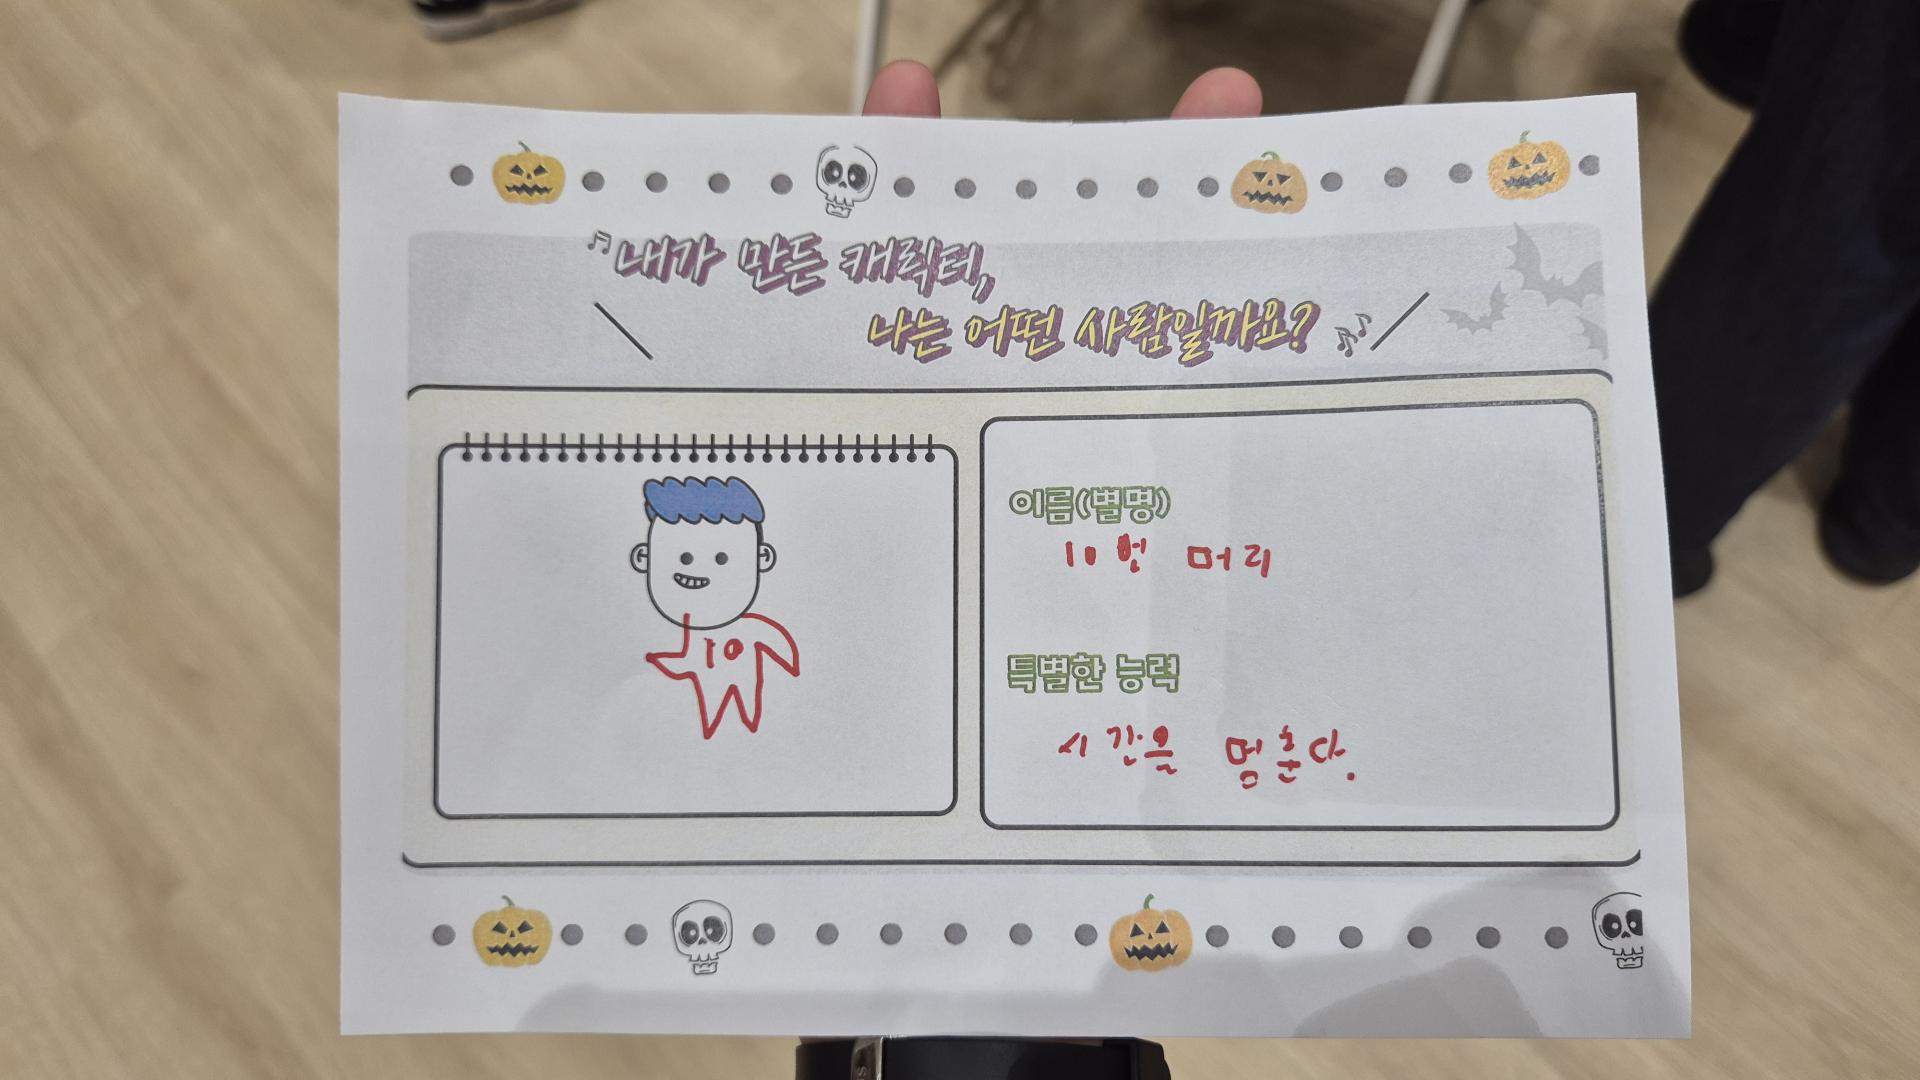 내가 만든 캐릭터,
나는 어떤 사람일까요?
10
이름(별명)
10번 머리
특별한 능력
시간을 멈춘다.